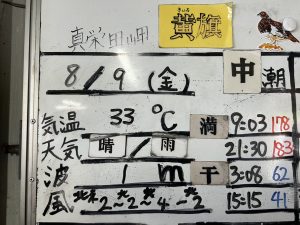 真栄田岬
きいろ
黄旗
8/9(金) 中潮
気温 33℃ 満 9:03 178
天気 晴/雨 21:30 183
波 1m 干 3:08 62
風 北東2～北2～北4～北2 15:15 41